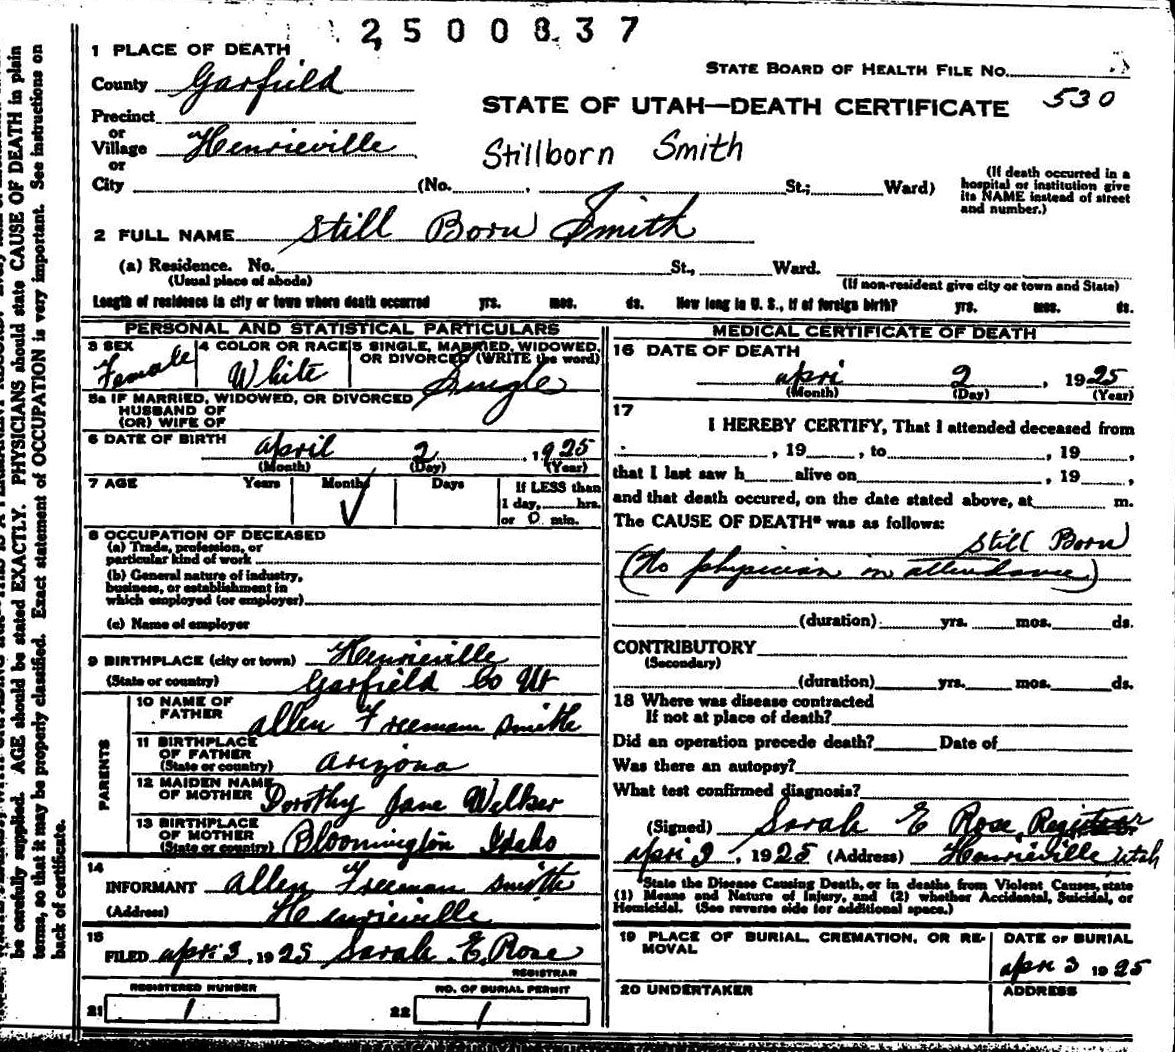 2500837
1 PLACE OF DEATH
STATE BOARD OF HEALTH FILE No.
County Garfield
STATE OF UTAH—DEATH CERTIFICATE 530
Precinct
or
Village Henrieville
Stillborn Smith
or
City (No. St.; Ward)
(If death occurred in a
hospital or institution give
its NAME instead of street
and number.)
2 FULL NAME Still Born Smith
(a) Residence. No. St., Ward.
(Usual place of abode) (If non-resident give city or town and State)
Length of residence in city or town where death occurred yrs. mos. ds. How long in U. S., if of foreign birth? yrs. mos. ds.
PERSONAL AND STATISTICAL PARTICULARS
3 SEX 4 COLOR OR RACE 5 SINGLE, MARRIED, WIDOWED,
OR DIVORCED (WRITE the word)
Female White Single
5a IF MARRIED, WIDOWED, OR DIVORCED
HUSBAND OF
(OR) WIFE OF
6 DATE OF BIRTH april 2, 1925
(Month) (Day) (Year)
7 AGE Years Months Days If LESS than
1 day, hrs.
or 0 min.
8 OCCUPATION OF DECEASED
(a) Trade, profession, or
particular kind of work
(b) General nature of industry,
business, or establishment in
which employed (or employer)
(c) Name of employer
9 BIRTHPLACE (city or town) Henrieville
(State or country) Garfield Co Ut
PARENTS
10 NAME OF
FATHER allen Freeman smith
11 BIRTHPLACE
OF FATHER
(State or country) arizona
12 MAIDEN NAME
OF MOTHER Dorothy Jane
13 BIRTHPLACE
OF MOTHER
(State or country) Bloomington Idaho
14
INFORMANT allen Freeman smith
(Address) Henrieville
15
FILED apri 3, 1925 Sarah E. Rose
REGISTRAR
REGISTERED NUMBER NO. OF BURIAL PERMIT
21 1 22 1
MEDICAL CERTIFICATE OF DEATH
16 DATE OF DEATH
apri 2, 1925
(Month) (Day) (Year)
17
I HEREBY CERTIFY, That I attended deceased from
, 19 , to , 19 ,
that I last saw h alive on , 19 ,
and that death occured, on the date stated above, at m.
The CAUSE OF DEATH* was as follows:
still Born
(No physician in attendance)
(duration) yrs. mos. ds.
CONTRIBUTORY
(Secondary)
(duration) yrs. mos. ds.
18 Where was disease contracted
If not at place of death?
Did an operation precede death? Date of
Was there an autopsy?
What test confirmed diagnosis?
(Signed) Sarah E Rose, Registrar
apri 3, 1925 (Address) Henrieville Utah
*State the Disease Causing Death, or in deaths from Violent Causes, state
(1) Means and Nature of Injury, and (2) whether Accidental, Suicidal, or
Homicidal. (See reverse side for additional space.)
19 PLACE OF BURIAL, CREMATION, OR RE-
MOVAL
DATE OF BURIAL
apri 3 1925
20 UNDERTAKER ADDRESS
be carefully supplied. AGE should be stated EXACTLY. PHYSICIANS should state CAUSE OF DEATH in plain
terms, so that it may be properly classified. Exact statement of OCCUPATION is very important. See instructions on
back of certificate.